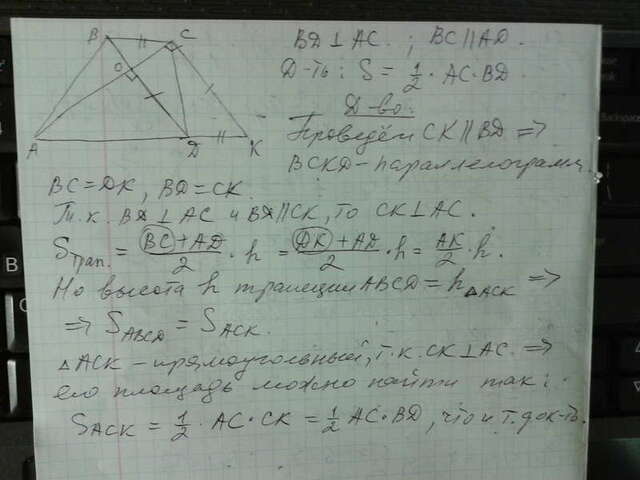 B C
O
A D K
BD ⊥ AC. ; BC || AD.
Д-ть: S = 1/2 · AC · BD.
Д-во:
Проведём CK || BD ⇒
BCKD – параллелограмм.
BC = DK, BD = CK.
Т.к. BD ⊥ AC и BD || CK, то CK ⊥ AC.
Sтрап. = (BC + AD)/2 · h = (DK + AD)/2 · h = AK/2 · h.
Но высота h трапеции ABCD = h△ACK ⇒
⇒ SABCD = SACK.
△ACK – прямоугольный, т.к. CK ⊥ AC. ⇒
его площадь можно найти так:
SACK = 1/2 · AC · CK = 1/2 AC · BD, что и т. док-ть.
B
N